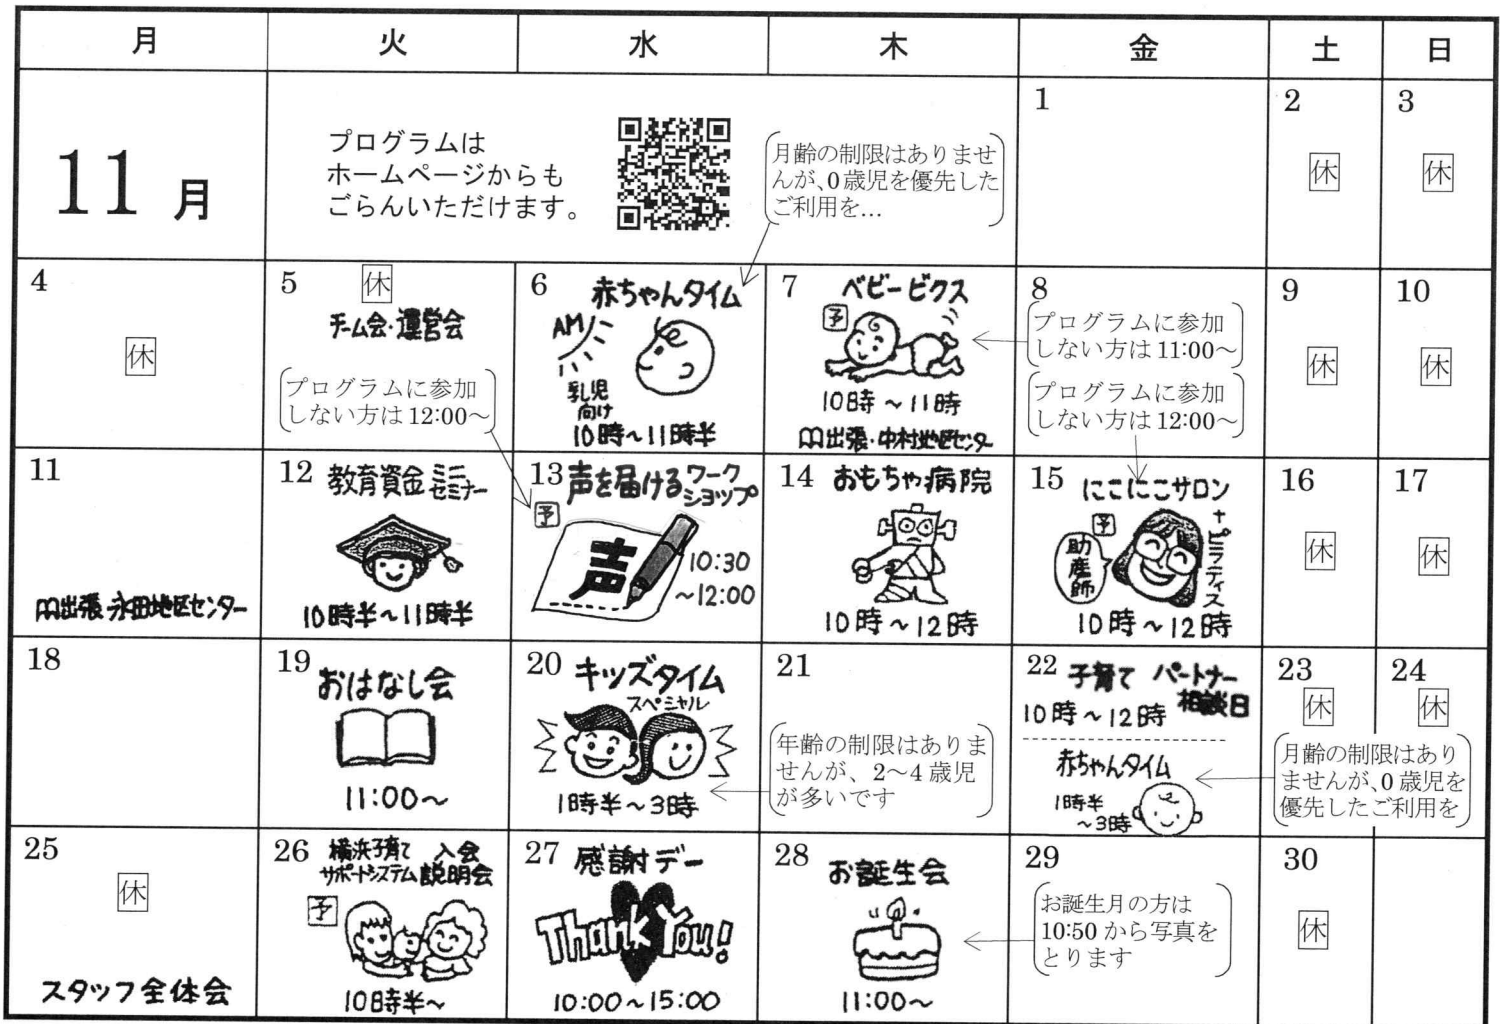 月 火 水 木 金 土 日
11月
プログラムは
ホームページからも
ごらんいただけます。
月齢の制限はありませ
んが、0歳児を優先した
ご利用を…
1
2
休
3
休
4
休
5
休
チーム会・運営会
プログラムに参加
しない方は12:00～
6
赤ちゃんタイム
AM
乳児
向け
10時～11時半
7
ベビービクス
予
10時～11時
出張・中村地区センター
8
プログラムに参加
しない方は11:00～
プログラムに参加
しない方は12:00～
9
休
10
休
11
出張・永田地区センター
12
教育資金ミニ
セミナー
10時半～11時半
13
声を届けるワーク
ショップ
予
声
10:30
～12:00
14
おもちゃ病院
10時～12時
15
にこにこサロン
＋ピラティス
予
助産師
10時～12時
16
休
17
休
18
19
おはなし会
11:00～
20
キッズタイム
スペシャル
1時半～3時
21
年齢の制限はありま
せんが、2～4歳児
が多いです
22
子育てパートナー
相談日
10時～12時
赤ちゃんタイム
1時半
～3時
23
休
24
休
月齢の制限はあり
ませんが、0歳児を
優先したご利用を
25
休
スタッフ全体会
26
横浜子育て
サポートシステム
入会
説明会
予
10時半～
27
感謝デー
Thank You!
10:00～15:00
28
お誕生会
11:00～
29
お誕生月の方は
10:50から写真を
とります
30
休